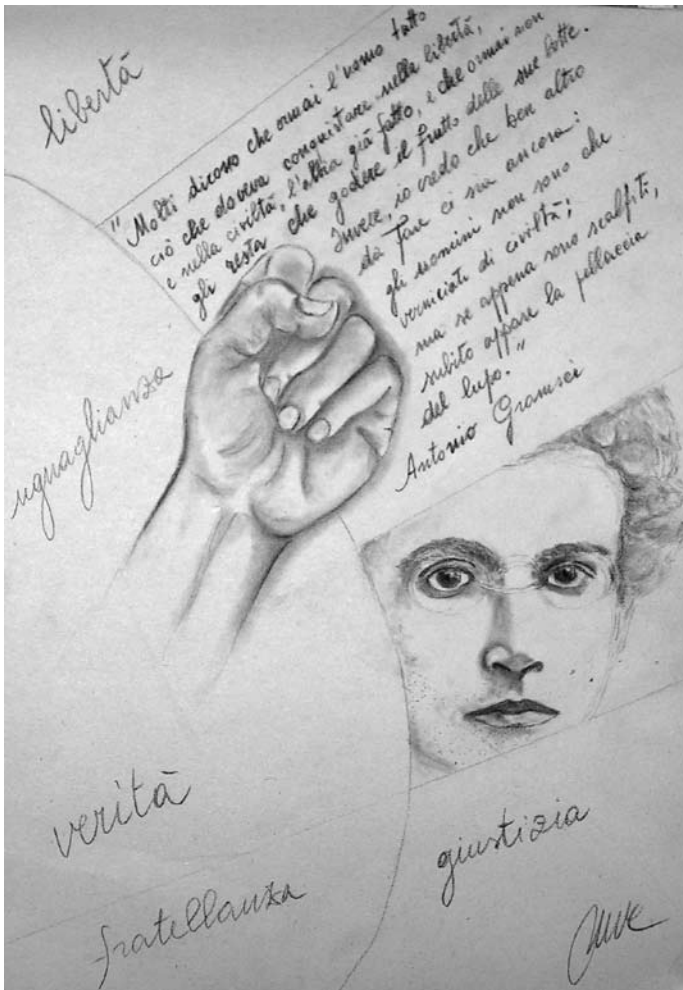 libertà
"Molti dicono che ormai l'uomo tutto
ciò che doveva conquistare nella libertà,
e nella civiltà, l'abbia già fatto, e che ormai non
gli resta che godere il frutto delle sue lotte.
Invece, io credo che ben altro
da fare ci sia ancora:
gli uomini non sono che
verniciati di civiltà;
ma se appena sono scalfiti,
subito appare la pellaccia
del lupo."
Antonio Gramsci
uguaglianza
verità
giustizia
fratellanza